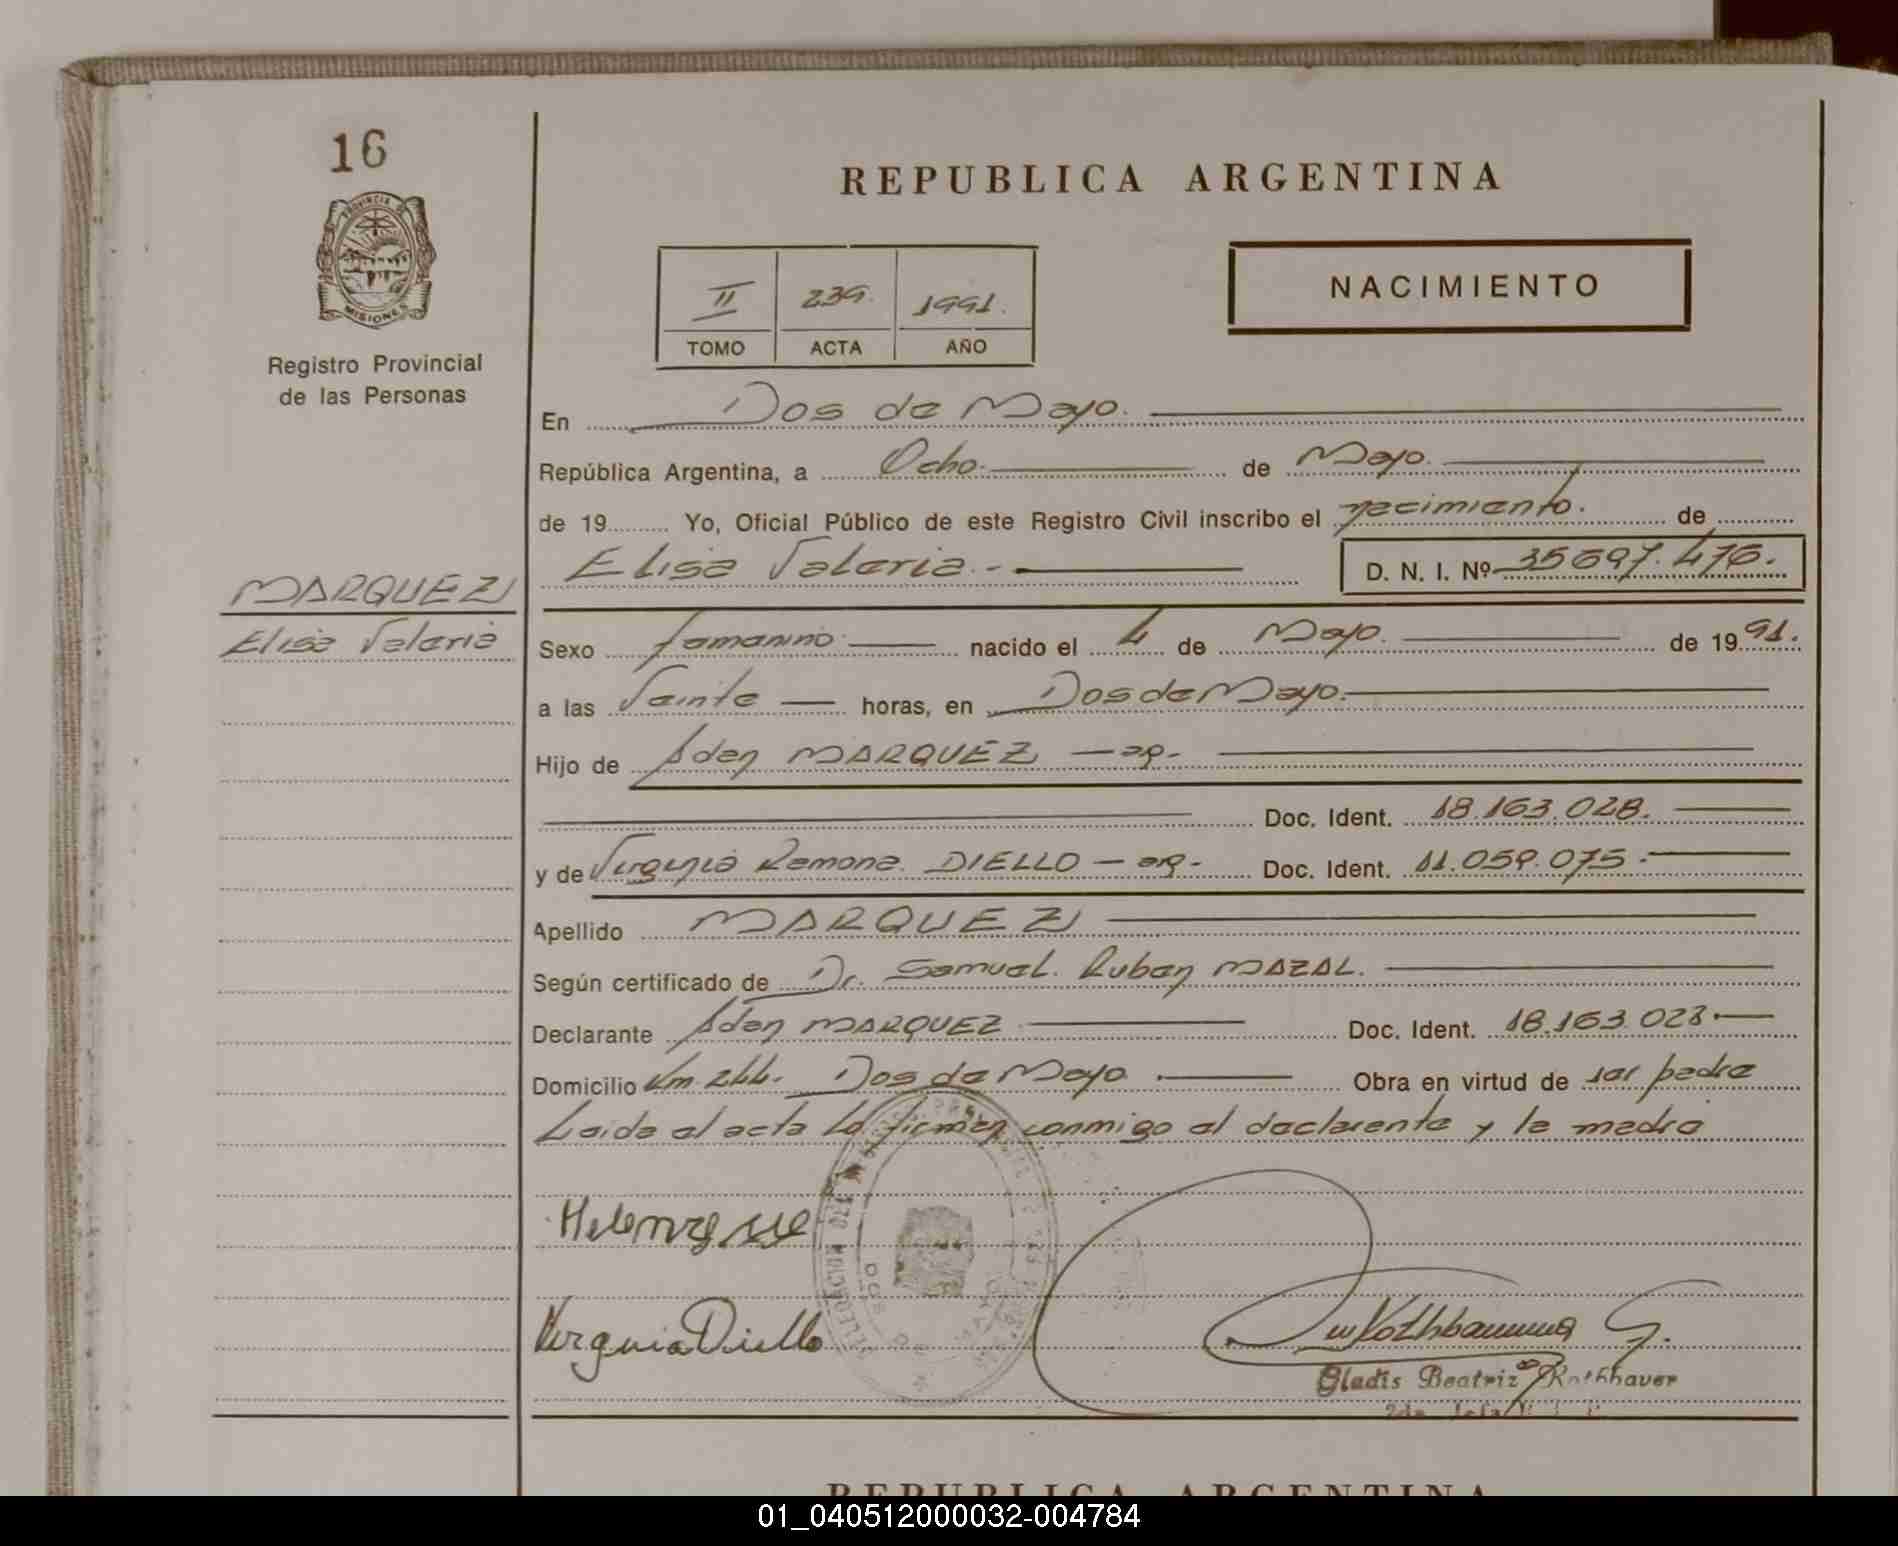 16
PROVINCIA DE
MISIONES
Registro Provincial
de las Personas
REPUBLICA ARGENTINA
II 239. 1991.
TOMO ACTA AÑO
NACIMIENTO
En Dos de Mayo.
República Argentina, a Ocho. de Mayo.
de 19 Yo, Oficial Público de este Registro Civil inscribo el nacimiento. de
Elisa Valeria.- D. N. I. Nº 35697.476.
MARQUEZ
Elisa Valeria
Sexo femenino. nacido el 4 de Mayo. de 1991.
a las Veinte horas, en Dos de Mayo.
Hijo de Aden MARQUEZ — arg-
Doc. Ident. 18.163.028.
y de Virginia Ramona. DIELLO — arg- Doc. Ident. 11.059.075.
Apellido MARQUEZ
Según certificado de Dr. Samuel. Ruben MAZAL.
Declarante Aden MARQUEZ Doc. Ident. 18.163.028.
Domicilio Km. 244. Dos de Mayo. Obra en virtud de ser padre
Leida el acta la firman conmigo el declarante y la madre
DOS DE MAYO
Virginia Diello
Gladis Beatriz Rothhaver
REPUBLICA ARGENTINA
01_040512000032-004784